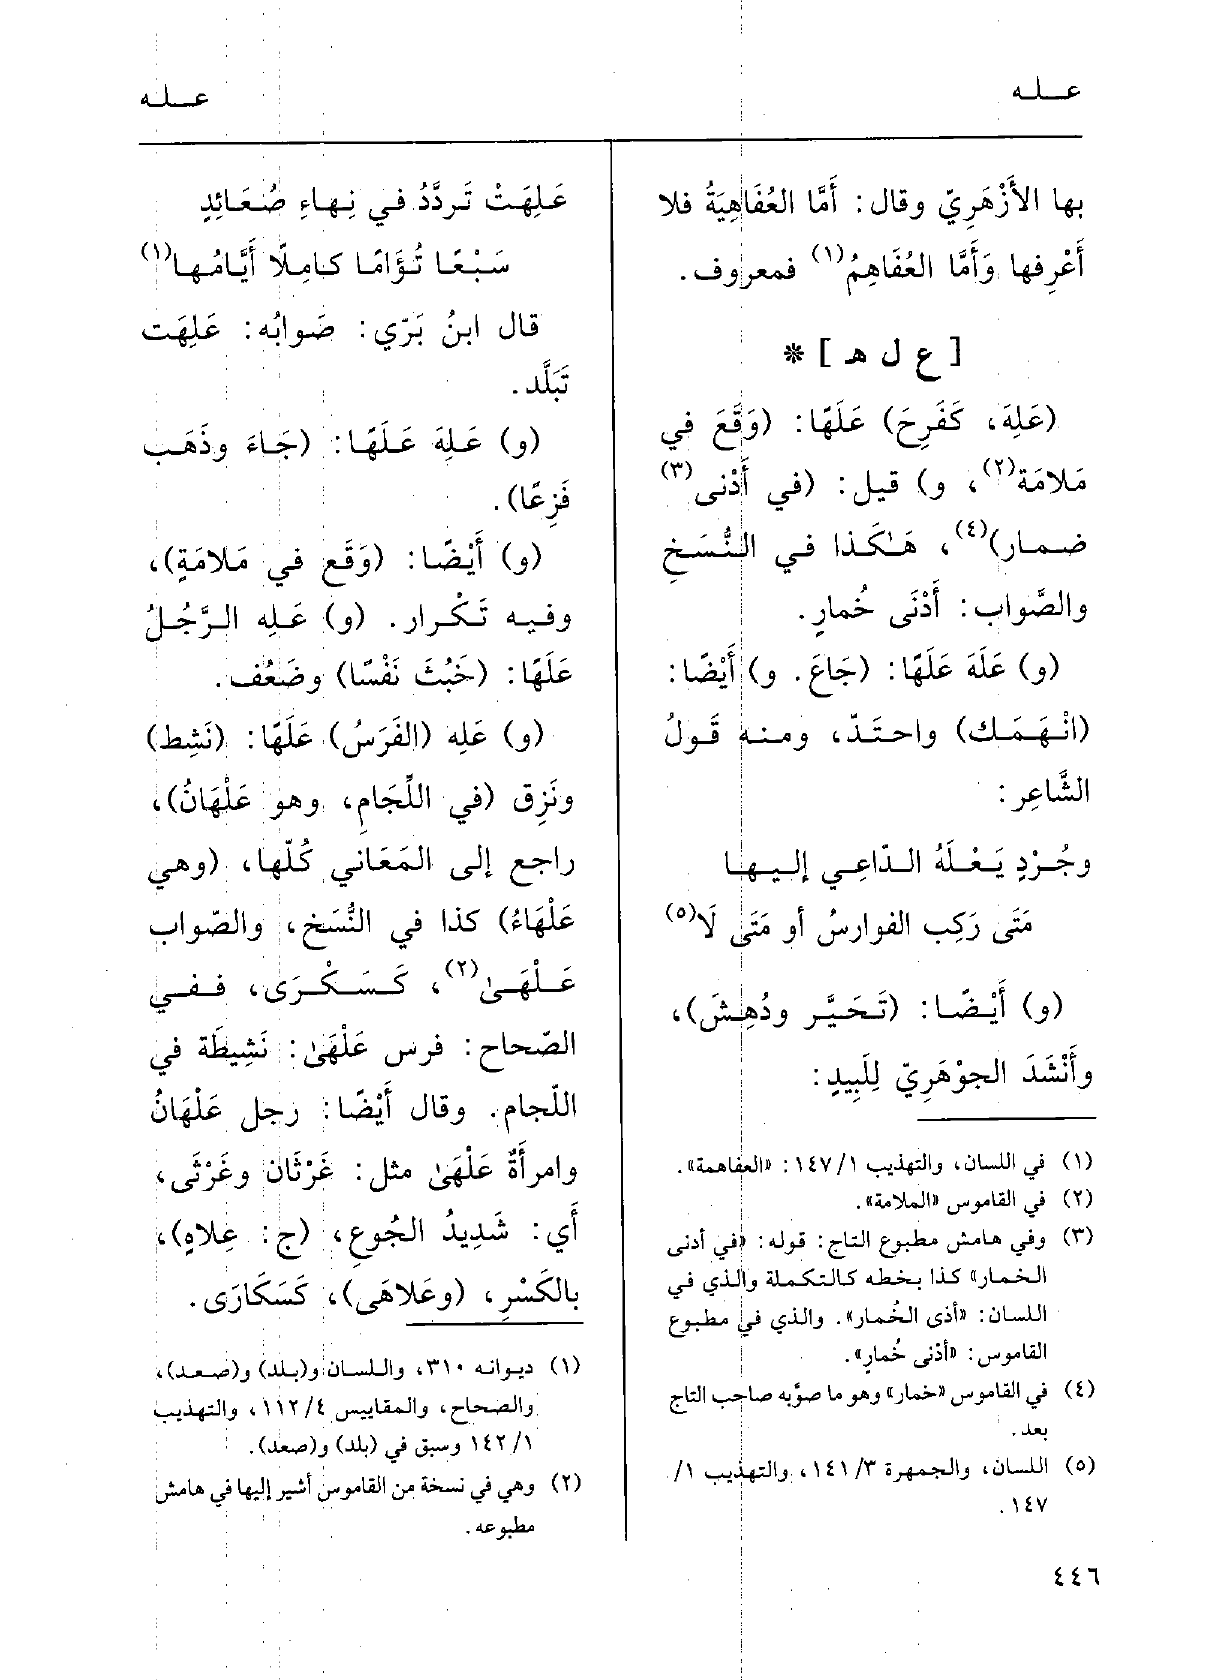 عـلـه
عـلـه
بها الأَزْهَرِيّ وقال: أَمَّا العُفَاهِيَةُ فلا
أَعْرِفها وَأَمَّا العُفَاهِمُ(١) فمعروف.
[ ع ل هـ ] *
(عَلِهَ، كَفَرِحَ) عَلَهًا: (وَقَعَ في
مَلامَة(٢)، و) قيل: (في أَدْنى(٣)
ضمار)(٤)، هٰكَذا في النُّسَخِ
والصَّواب: أَدْنَى خُمارٍ.
(و) عَلَهَ عَلَهًا: (جَاعَ. و) أَيْضًا:
(انْهَمَك) واحتَدّ، ومنه قَولُ
الشَّاعِر:
وجُرْدٍ يَعْلَهُ الدّاعِي إليها
مَتَى رَكِب الفوارسُ أو مَتَى لَا(٥)
(و) أَيْضًا: (تَحَيَّر ودُهِشَ)،
وأَنْشَدَ الجوْهَرِيّ لِلَبِيدٍ:
(١) في اللسان، والتهذيب ١٤٧/١: «العفاهمة».
(٢) في القاموس «الملامة».
(٣) وفي هامش مطبوع التاج: قوله: «في أدنى
الخمار» كذا بخطه كالتكملة والذي في
اللسان: «أذى الخُمار». والذي في مطبوع
القاموس: «أَدْنى خُمارٍ».
(٤) في القاموس «خمار» وهو ما صوّبه صاحب التاج
بعد.
(٥) اللسان، والجمهرة ١٤١/٣، والتهذيب ١/
١٤٧.
عَلِهَتْ تَردَّدُ في نِهاءِ صُعَائِدٍ
سَبْعًا تُؤَامًا كامِلًا أَيَّامُها(١)
قال ابنُ بَرّي: صَوابُه: عَلِهَت
تَبَلَّد.
(و) عَلِهَ عَلَهًا: (جَاءَ وذَهَب
فَزِعًا).
(و) أَيْضًا: (وَقَع في مَلامَةٍ)،
وفيه تَكْرار. (و) عَلِه الرَّجُلُ
عَلَهًا: (خَبُثَ نَفْسًا) وضَعُف.
(و) عَلِه (الفَرَسُ) عَلَهًا: (نَشِط)
ونَزِق (في اللِّجَامِ، وهو عَلْهَانُ)،
راجع إلى المَعَاني كُلّها، (وهي
عَلْهَاءُ) كذا في النُّسَخ، والصّواب
عَلْهَىٰ(٢)، كَسَكْرَى، ففي
الصّحاح: فرس عَلْهَىٰ: نَشِيطَة في
اللّجام. وقال أَيْضًا: رجل عَلْهَانُ
وامرأَةٌ عَلْهَىٰ مثل: غَرْثَان وغَرْثَى،
أَي: شَدِيدُ الجُوعِ، (ج: عِلاهٍ)،
بالكَسْرِ، (وعَلاهَى)، كَسَكَارَى.
(١) ديوانه ٣١٠، واللسان و(بلد) و(صعد)،
والصحاح، والمقاييس ١١٢/٤، والتهذيب
١٤٢/١ وسبق في (بلد) و(صعد).
(٢) وهي في نسخة من القاموس أشير إليها في هامش
مطبوعه.
٤٤٦